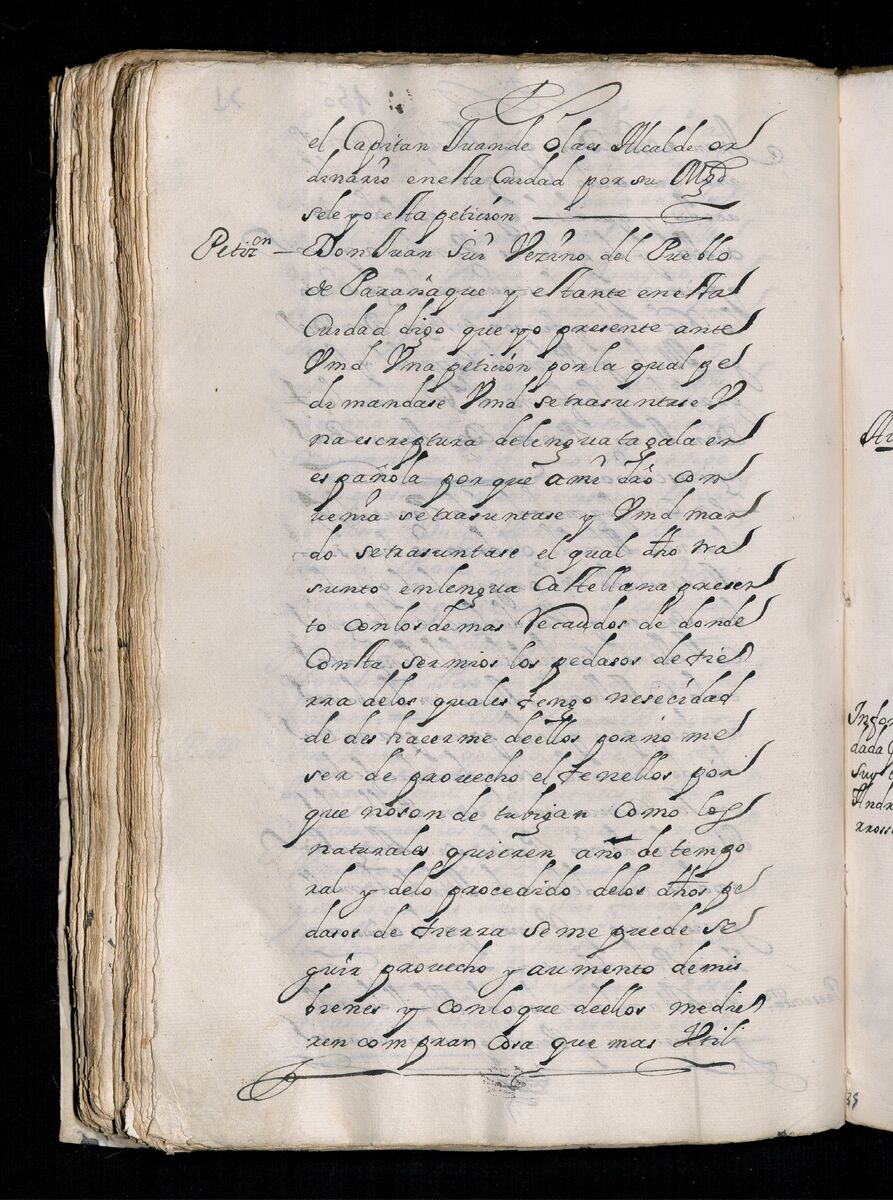 el Capitan Juan de Olaes Alcalde or
dinario en esta Ciudad por su Mgd
se leyo esta peticion
Petizon — Don Juan Sui Vezino del Pueblo
de Parañaque y estante en esta
Ciudad digo que yo presente ante
Vmd Vna peticion por la qual pe
di mandase Vmd se trasuntase V
na escreptura de lengua tagala en
española por que a mi dro com
venia se trasuntase y Vmd man
do se trasuntase el qual dho tra
sunto en lengua Castellana presen
to con los demas Recaudos de donde
Consta ser mios los pedasos de tie
rra de los quales tengo nesecidad
de des hacerme de ellos por no me
ser de provecho el tenellos por
que no son de tubigan como los
naturales quieren año de tempo
ral y de lo procedido de los dhos pe
dasos de tierra se me puede se
guir provecho y aumento de mis
bienes y con lo que de ellos me die
ren compran cosa que mas Vtil
Infor
dada
Suy
Andr